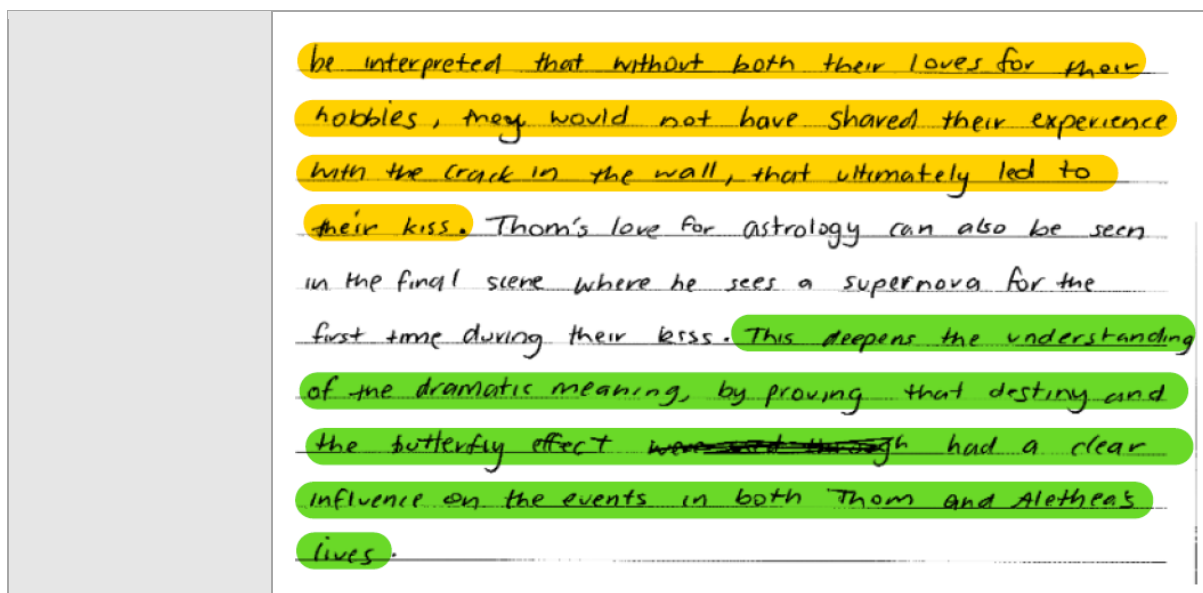 be interpreted that without both their loves for their
hobbies, they would not have shared their experience
with the crack in the wall, that ultimately led to
their kiss. Thom's love for astrology can also be seen
in the final scene where he sees a supernova for the
first time during their kiss. This deepens the understanding
of the dramatic meaning, by proving that destiny and
the butterfly effect had a clear
influence on the events in both Thom and Aletheas
lives.